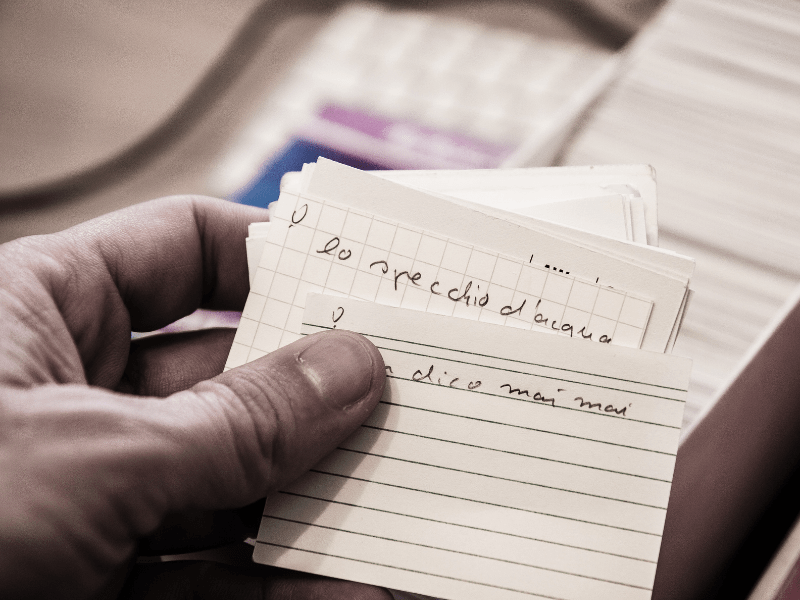 lo specchio d'acqua
dico mai mai